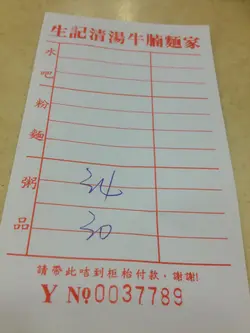 生記清湯牛腩麵家
水吧
粉麵
粥品
34
30
請帶此咭到柜枱付款,謝謝!
Y №0037789